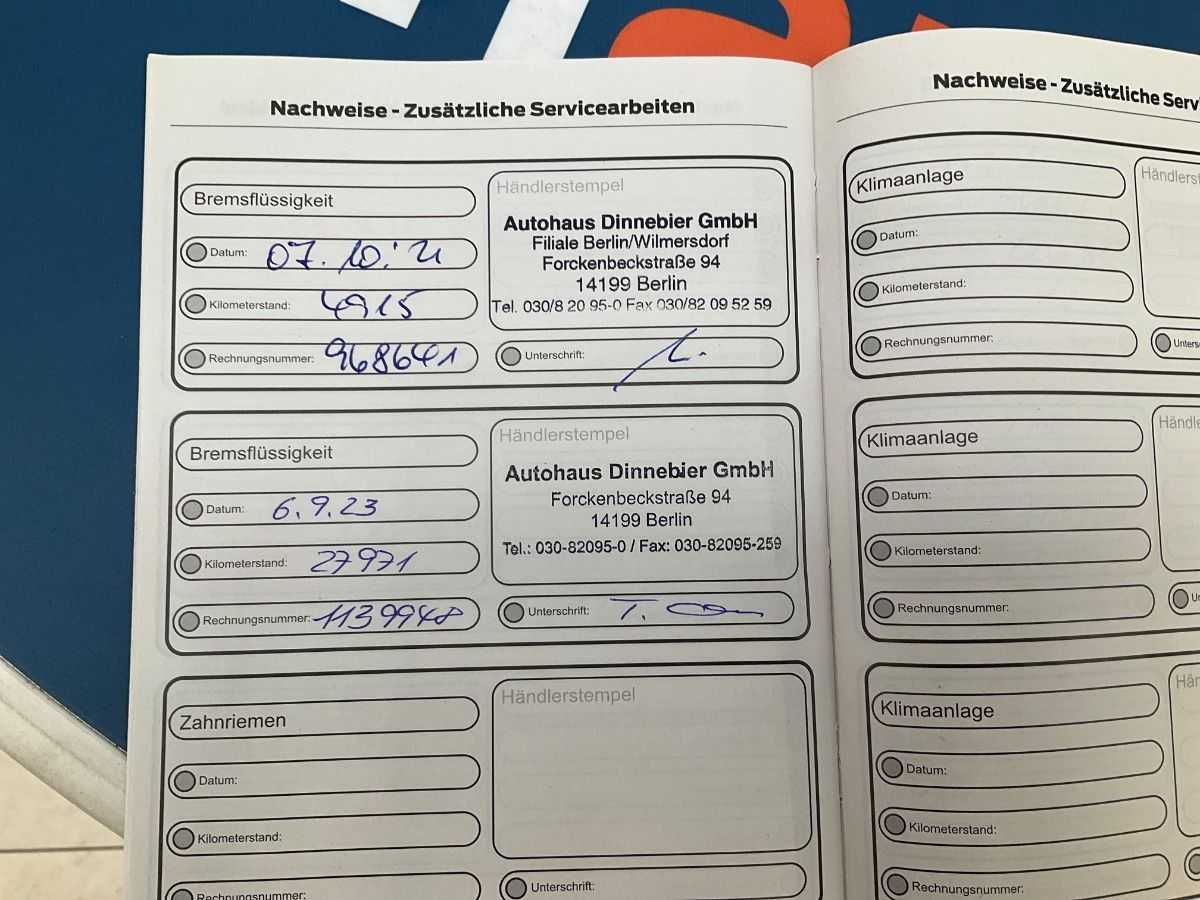 Nachweise - Zusätzliche Servicearbeiten
Bremsflüssigkeit
Datum: 07.10.'21
Kilometerstand: 4915
Rechnungsnummer: 968641
Händlerstempel
Autohaus Dinnebier GmbH
Filiale Berlin/Wilmersdorf
Forckenbeckstraße 94
14199 Berlin
Tel. 030/8 20 95-0 Fax 030/82 09 52 59
Unterschrift:
Bremsflüssigkeit
Datum: 6.9.23
Kilometerstand: 27971
Rechnungsnummer: 1139948
Händlerstempel
Autohaus Dinnebier GmbH
Forckenbeckstraße 94
14199 Berlin
Tel.: 030-82095-0 / Fax: 030-82095-259
Unterschrift:
Zahnriemen
Datum:
Kilometerstand:
Rechnungsnummer:
Händlerstempel
Unterschrift:
Nachweise - Zusätzliche Serv
Klimaanlage
Datum:
Kilometerstand:
Rechnungsnummer:
Händlerst
Unters
Klimaanlage
Datum:
Kilometerstand:
Rechnungsnummer:
Händle
Un
Klimaanlage
Datum:
Kilometerstand:
Rechnungsnummer:
Hän